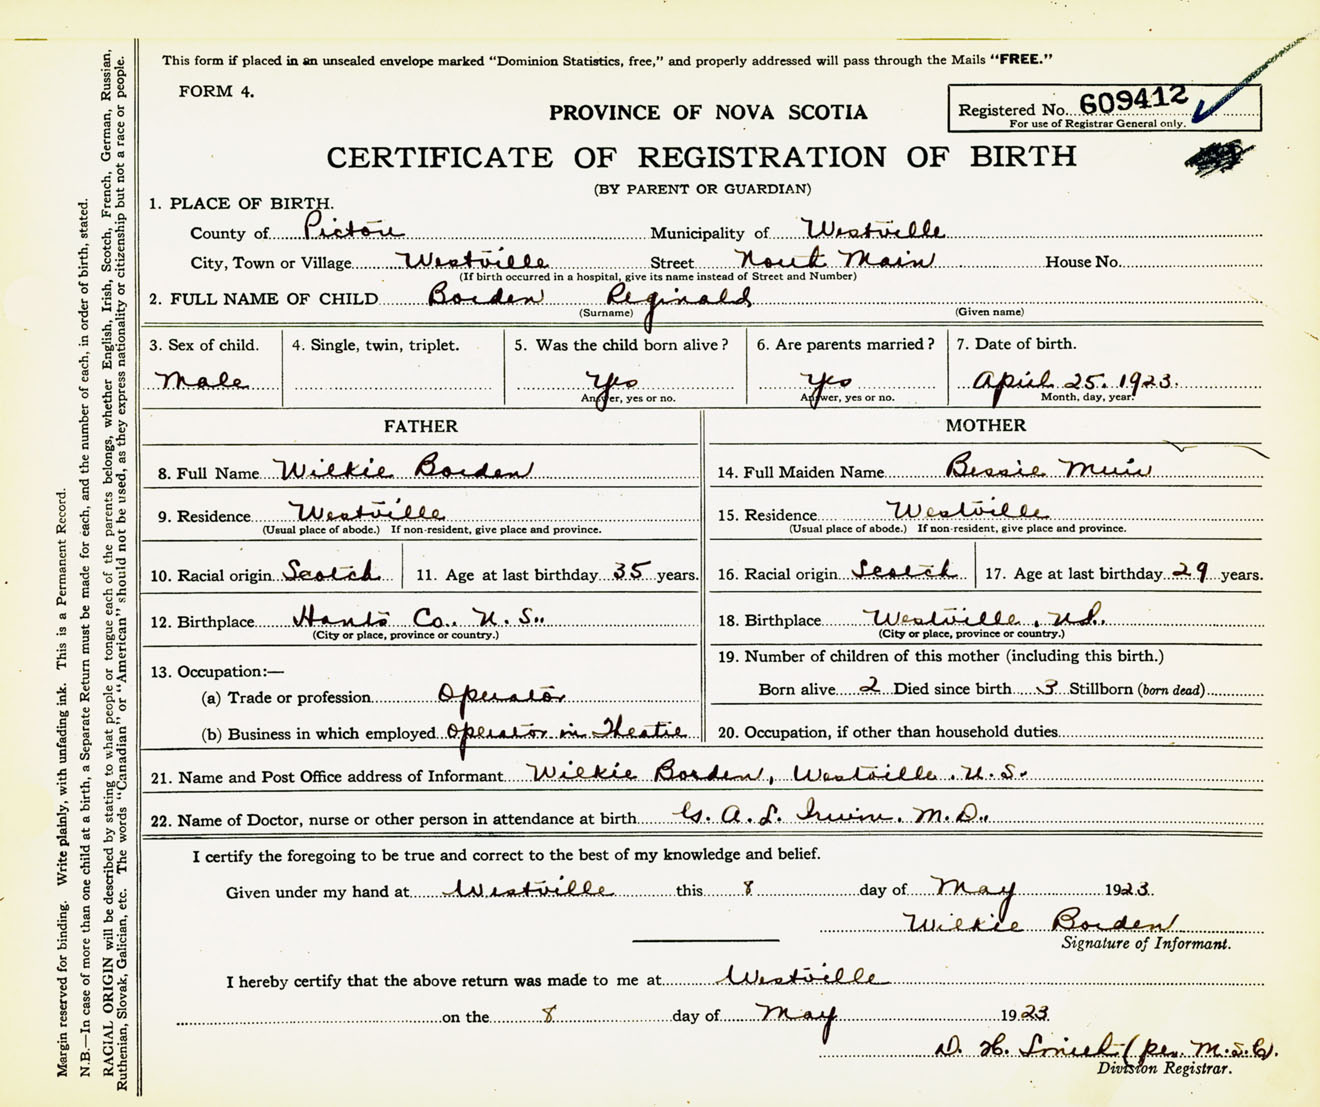 This form if placed in an unsealed envelope marked "Dominion Statistics, free," and properly addressed will pass through the Mails "FREE."
FORM 4.
PROVINCE OF NOVA SCOTIA
Registered No. 609412
For use of Registrar General only.
CERTIFICATE OF REGISTRATION OF BIRTH
(BY PARENT OR GUARDIAN)
1. PLACE OF BIRTH.
County of Pictou Municipality of Westville
City, Town or Village Westville Street North Main House No.
(If birth occurred in a hospital, give its name instead of Street and Number)
2. FULL NAME OF CHILD Borden Reginald
(Surname) (Given name)
3. Sex of child. 4. Single, twin, triplet. 5. Was the child born alive? 6. Are parents married? 7. Date of birth.
Male Yes Yes April 25. 1923.
Answer, yes or no. Answer, yes or no. Month, day, year.
FATHER MOTHER
8. Full Name Wilkie Borden 14. Full Maiden Name Bessie Muir
9. Residence Westville 15. Residence Westville
(Usual place of abode.) If non-resident, give place and province. (Usual place of abode.) If non-resident, give place and province.
10. Racial origin Scotch 11. Age at last birthday 35 years. 16. Racial origin Scotch 17. Age at last birthday 29 years.
12. Birthplace Hants Co. N. S. 18. Birthplace Westville, N.S.
(City or place, province or country.) (City or place, province or country.)
13. Occupation:— 19. Number of children of this mother (including this birth.)
(a) Trade or profession Operator Born alive 2 Died since birth 3 Stillborn (born dead)
(b) Business in which employed Operator in Theatre 20. Occupation, if other than household duties
21. Name and Post Office address of Informant Wilkie Borden, Westville. N. S.
22. Name of Doctor, nurse or other person in attendance at birth A. L. Irwin. M. D.
I certify the foregoing to be true and correct to the best of my knowledge and belief.
Given under my hand at Westville this 8 day of May 1923.
Wilkie Borden
Signature of Informant.
I hereby certify that the above return was made to me at Westville
on the 8 day of May 1923
D. H. (per. M.S.
Division Registrar.
Margin reserved for binding. Write plainly, with unfading ink. This is a Permanent Record.
N.B.—In case of more than one child at a birth, a Separate Return must be made for each, and the number of each, in order of birth, stated.
RACIAL ORIGIN will be described by stating to what people or tongue each of the parents belongs, whether English, Irish, Scotch, French, German, Russian,
Ruthenian, Slovak, Galician, etc. The words "Canadian" or "American" should not be used, as they express nationality or citizenship but not a race or people.